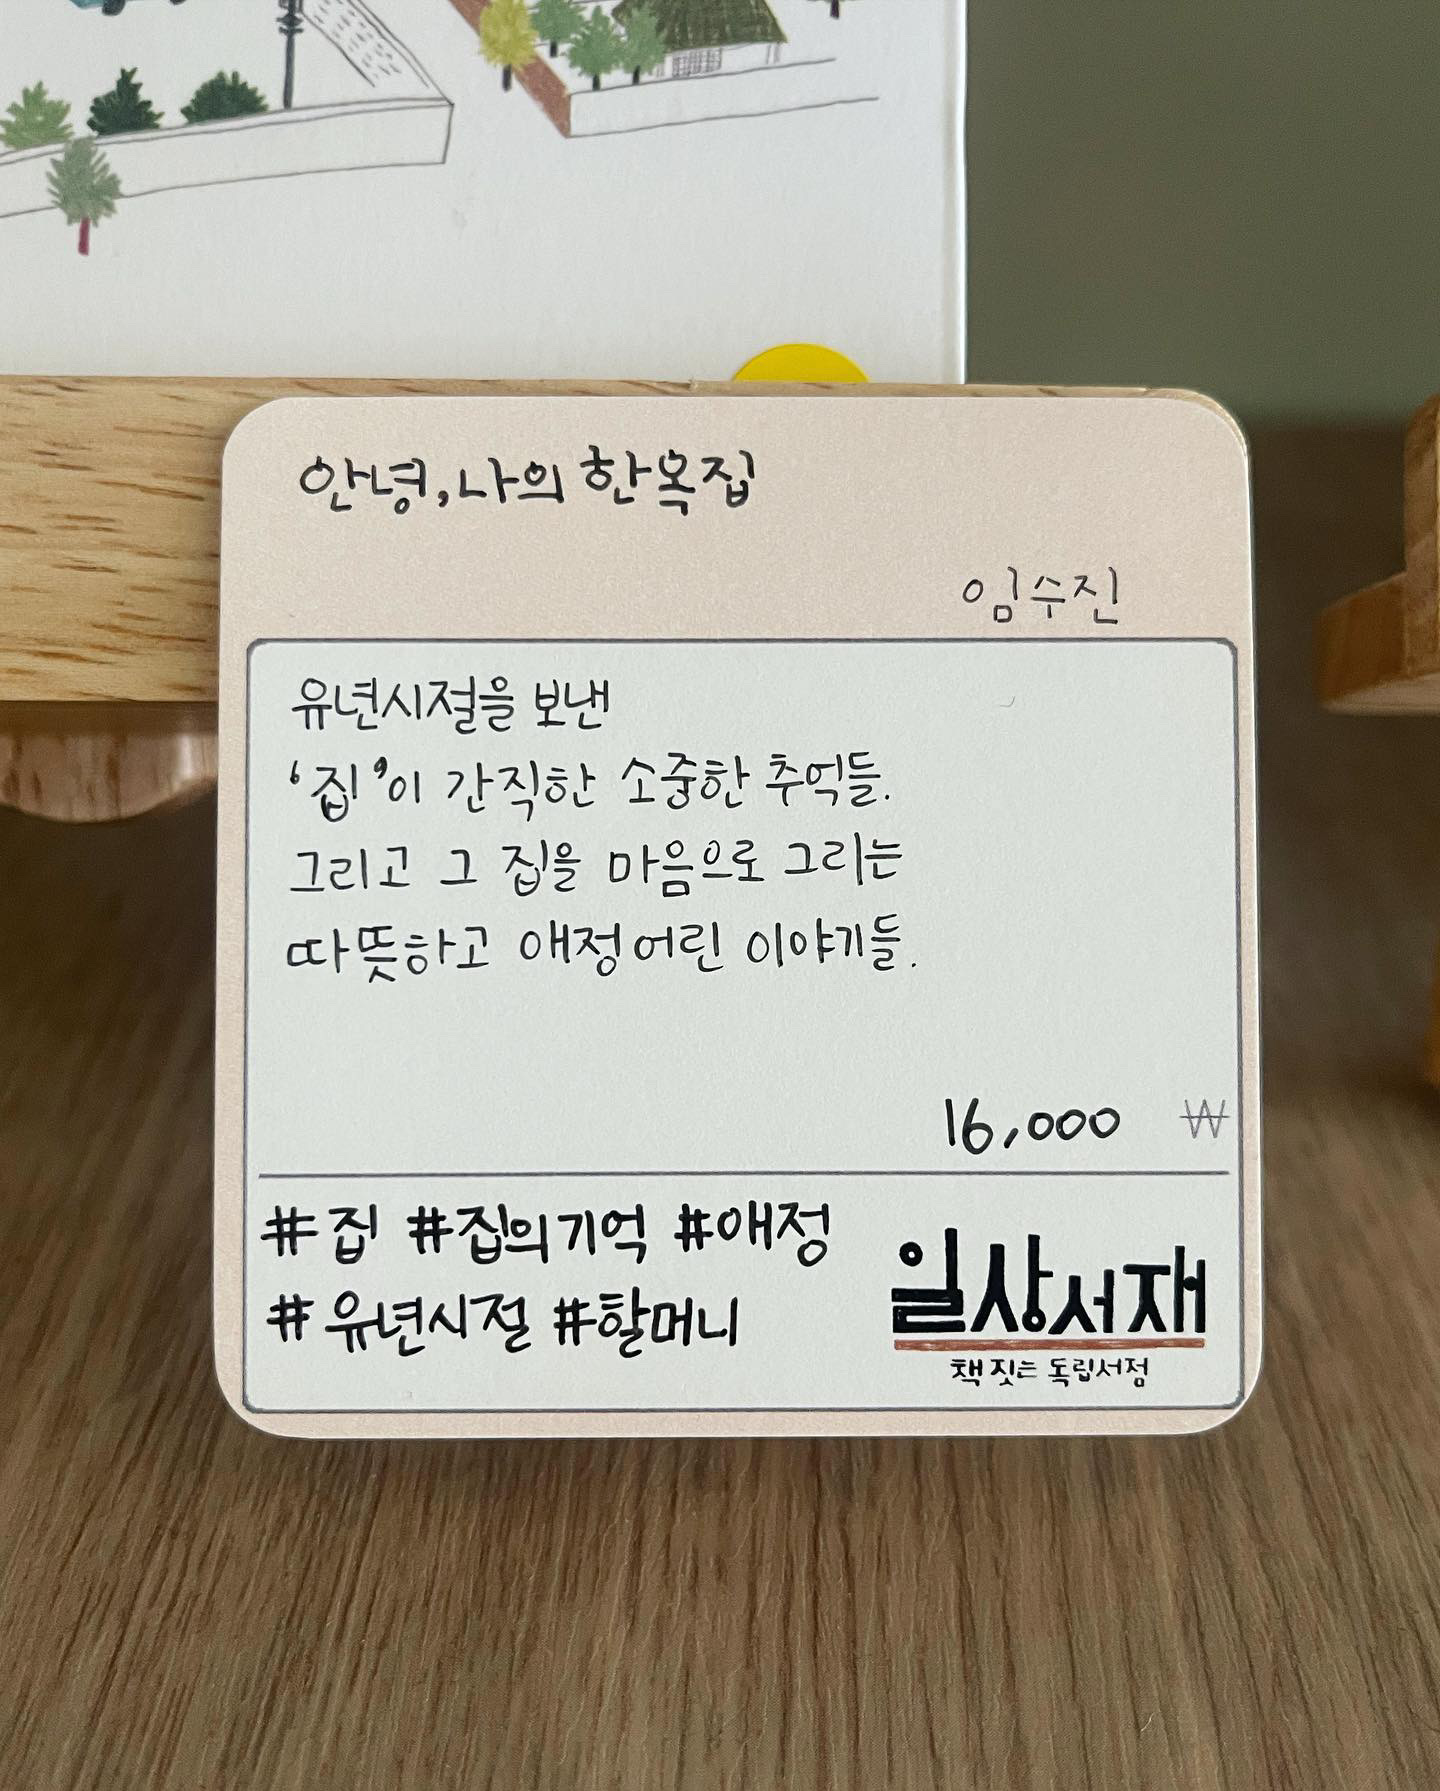 안녕, 나의 한옥집
임수진
유년시절을 보낸
‘집’이 간직한 소중한 추억들.
그리고 그 집을 마음으로 그리는
따뜻하고 애정어린 이야기들.
16,000 ₩
#집 #집의기억 #애정
#유년시절 #할머니
일상서재
책 짓는 독립서점